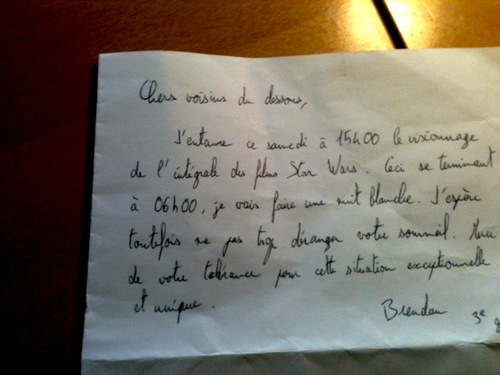 Chers voisins du dessous,
J'entame ce samedi à 15h00 le visionnage
de l'intégrale des films Star Wars. Ceci se terminant
à 06h00, je vais faire une nuit blanche. J'espère
toutefois ne pas trop déranger votre sommeil. Merci
de votre tolérance pour cette situation exceptionnelle
et unique.
Brendan 3e